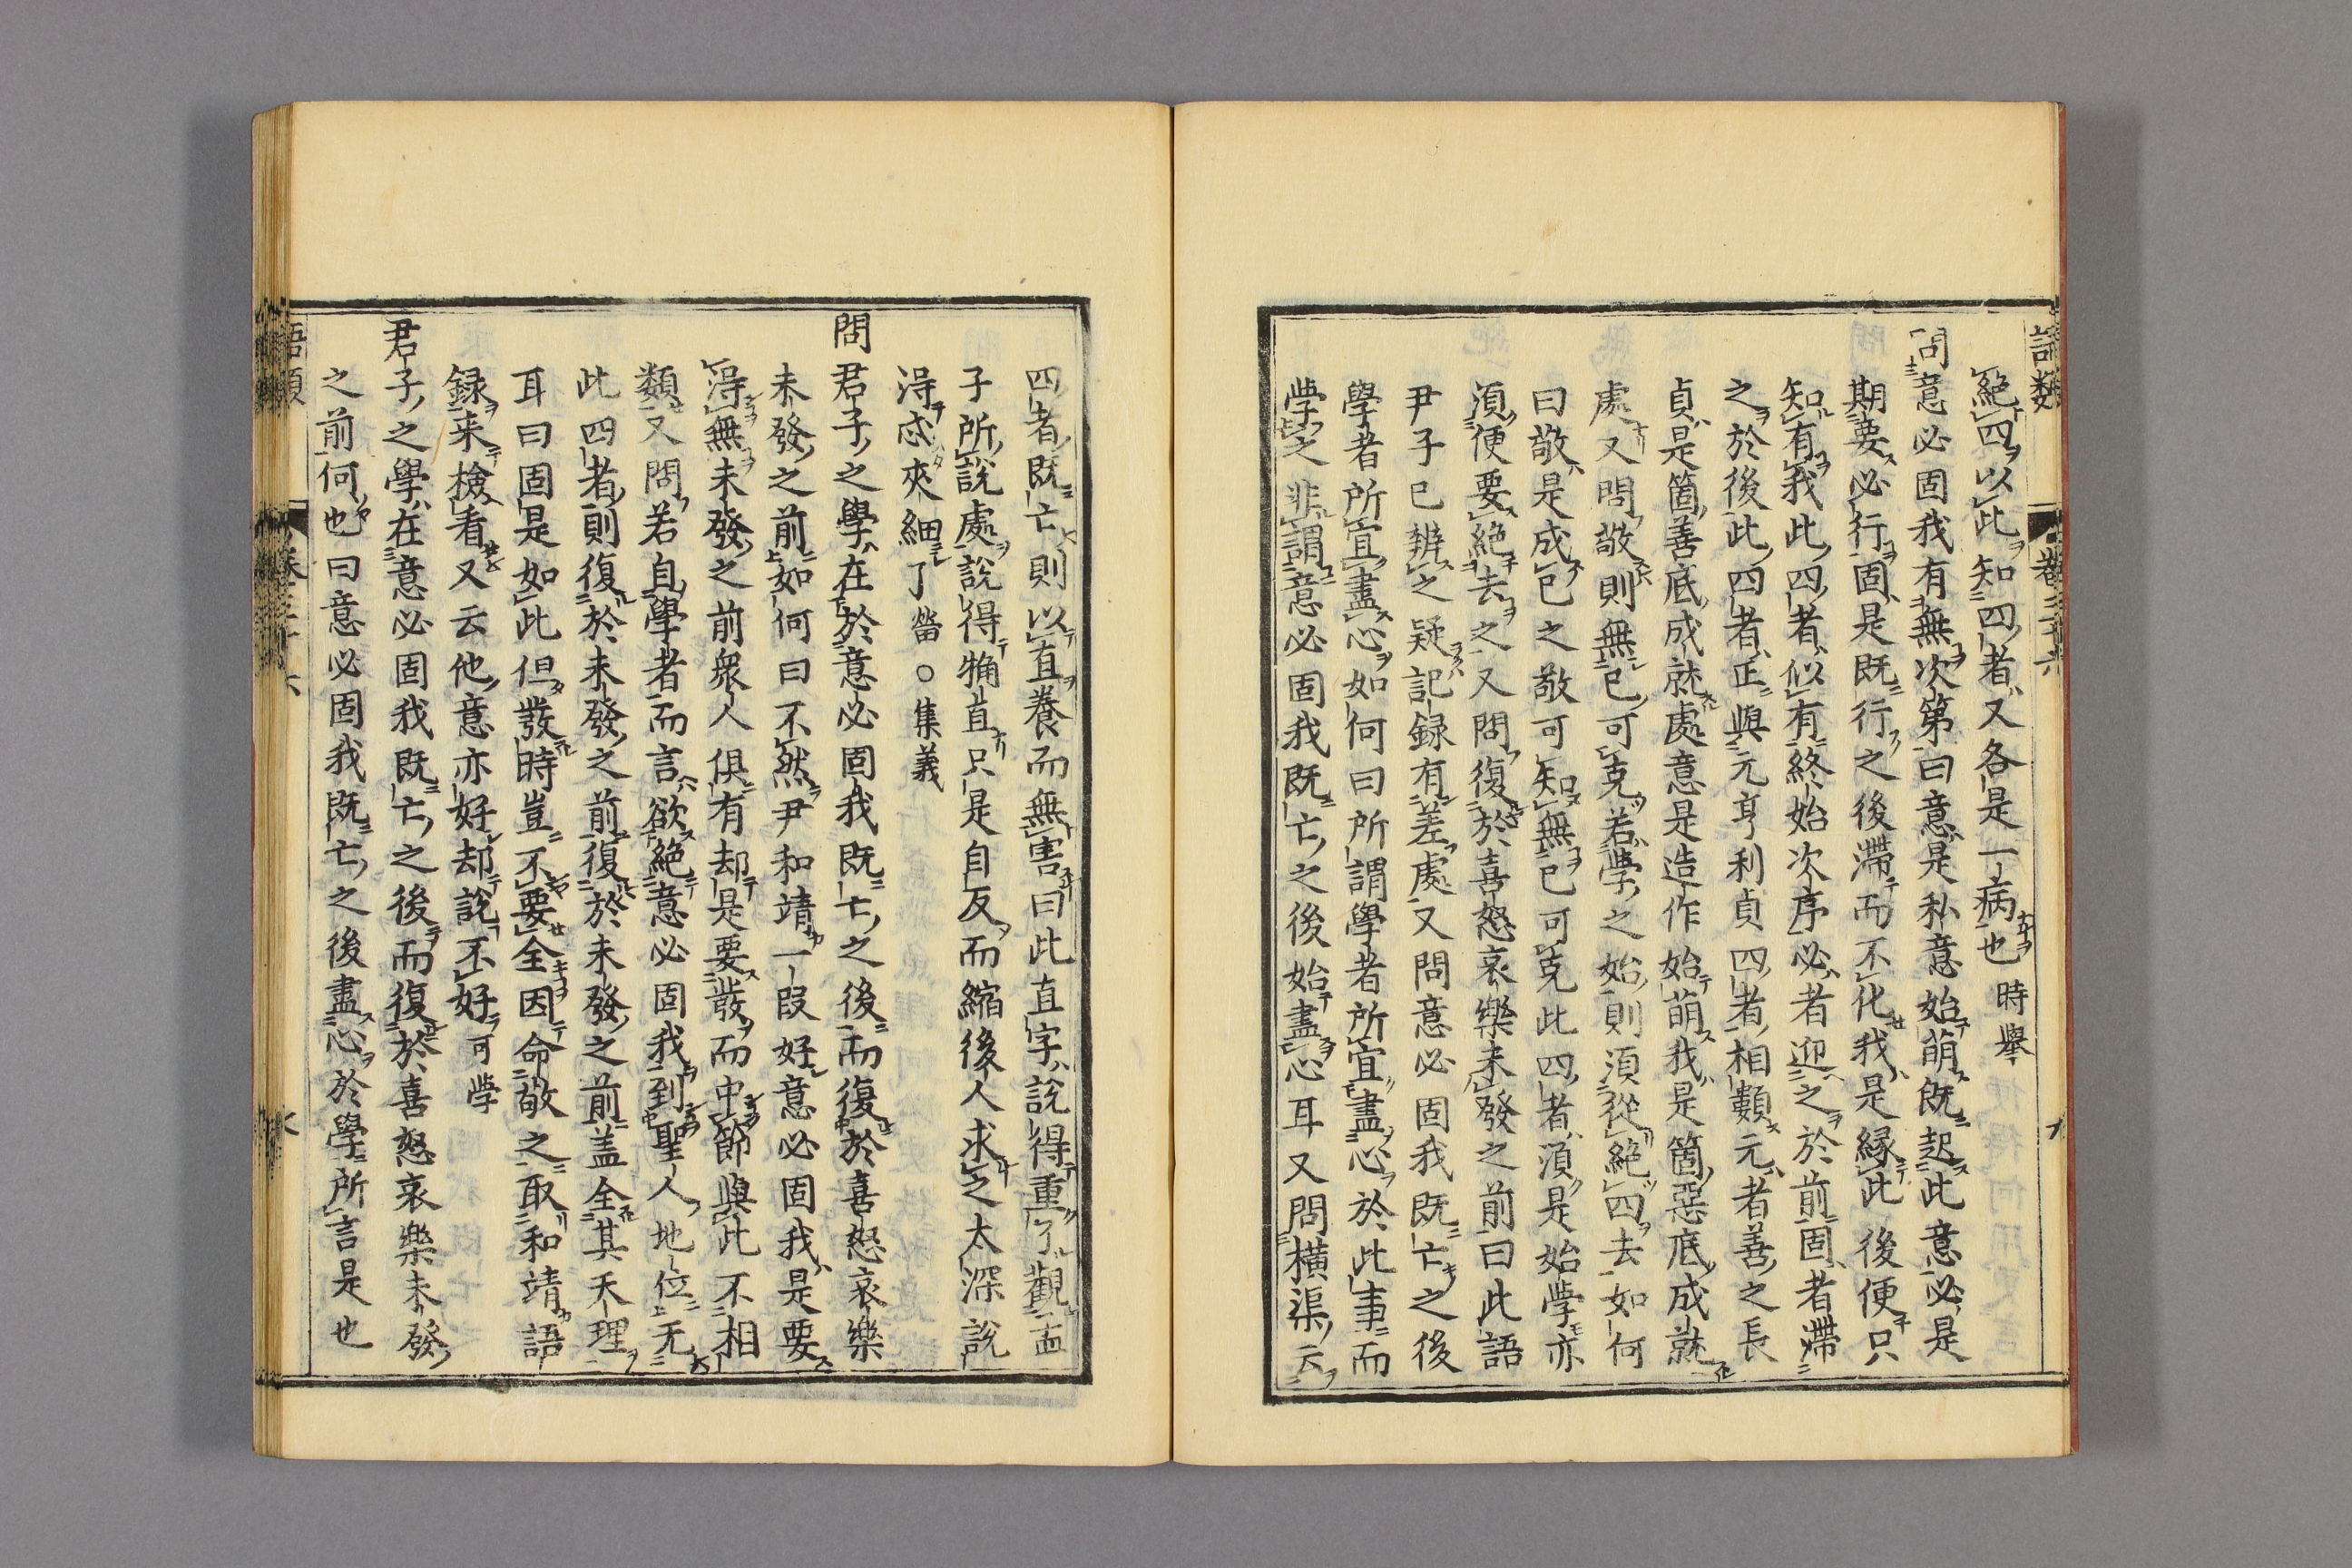 語類 卷三十六
絶四以此知四者又各是一病也時擧
問意必固我有無次第曰意是私意始萌既起此意必是
期要必行固是既行之後滯而不化我是縁此後便只
知有我此四者似有終始次序必者迎之於前固者滯
之於後此四者正與元亨利貞四者相類元者善之長
貞是箇善底成就處意是造作始萌我是箇惡底成就
處又問敬則無已可克若學之始則須從絶四去如何
曰敬是成已之敬可知無已可克此四者須是始學亦
須便要絶去之又問復於喜怒哀樂未發之前曰此語
尹子已辨之疑記録有差處又問意必固我既亡之後
學者所宜盡心如何曰所謂學者所宜盡心於此事而
學之非謂意必固我既亡之後始盡心耳又問橫渠云
四者既亡則以直養而無害曰此直字說得重了觀孟
子所說處說得觕直只是自反而縮後人求之太深說
得忒夾細了㽦○集義
問君子之學在於意必固我既亡之後而復於喜怒哀樂
未發之前如何曰不然尹和靖一段好意必固我是要
得無未發之前衆人俱有却是要發而中節與此不相
類又問若自學者而言欲絶意必固我到聖人地位无
此四者則復於未發之前復於未發之前盖全其天理
耳曰固是如此但發時豈不要全因命敬之取和靖語
録来檢看又云他意亦好却說不好可學
君子之學在意必固我既亡之後而復於喜怒哀樂未發
之前何也曰意必固我既亡之後盡心於學所言是也
語類 卷三十六